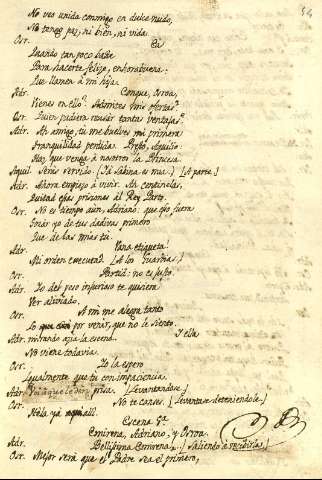 54
No veo unida conmigo en dulce nudo,
No tengo paz, ni bien, ni vida.
Osr. Ea
Quando tan poco baste
Para hacerte felize, enhorabuena:
Que llamen à mi hija.
Adr. Conque, Osroa,
Vienes en ello? Admites mis ofertas?
Osr. Quien pudiera reusar tantas ventajas?
Adr. Ah amigo, tu me buelves mi primera
tranquilidad perdida. Presto, Aquilio
Haz que venga à nosotros la Princesa
Aquil. Seràs servido. (Ya Sabina es mia.) [A parte]
Adr. Ahora empiezo à vivir. Ah centinelas,
Quitad esas prisiones al Rey Parto.
Osr. No es tiempo aun, Adriano: que yo fuera
de tus dadivas primero
Que de las mias tu.
Adr. Vana etiqueta!
Mi orden executad. [A los Guardias.]
Osr. Partid: no es justo.
Adr. Yo del peso injurioso te quisiera
Ver aliviado.
Osr. A mi me alegra tanto
Lo que por venar, que no le siento.
Adr. mirando azia la escena. Y ella
No viene todavia.
Osr. Yo la espero
Igualmente que tu con impaciencia.
Adr. prisa. [Levantandose]
Osr. No te canses. [Levantase deteniendole]
Hela ya alli.
Escena 5ª
Emirena, Adriano, y Osroa.
Adr. Bellissima Emirena, [Saliendo à recibirla]
Osr. Mejor serà que el Padre sea el primero,